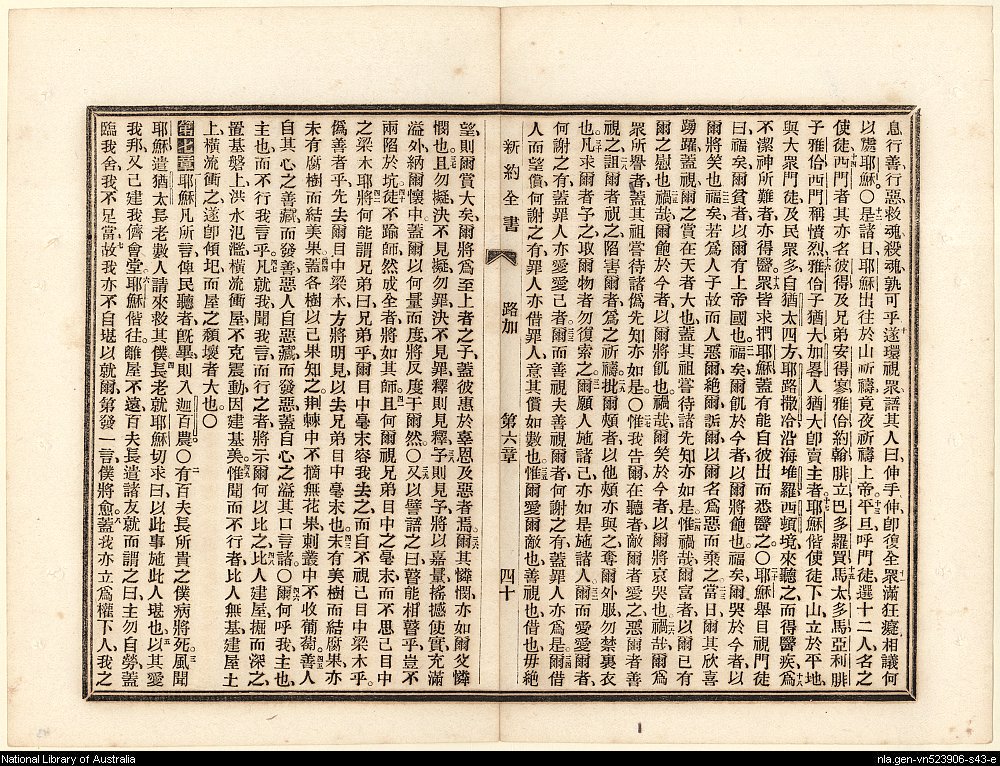 息行善、行惡救魂、殺魂、孰可乎、遂環視眾、語其人曰、伸手、伸即復全、眾滿狂癡、相議何
以虜耶穌、〇是諸日、耶穌出往於山祈禱、竟夜祈禱上帝、平旦呼門徒、選十二人、名之
使徒、西門者、其亦名彼得、及兄弟安得寡、雅伯、約翰、腓立、巴多羅買、馬太、多馬、亞利腓
子雅伯、西門稱憤烈、雅伯子猶大、加畧人猶大、即賣主者、耶穌偕使徒下山、立於平地、
與大眾門徒、及民眾多、自猶太四方、耶路撒冷、沿海堆羅西頓境來、聽之而得醫疾、為
不潔神所難者、亦得醫、眾皆求捫耶穌、蓋有能自彼出而悉醫之、〇耶穌舉目視門徒
曰、福矣、爾貧者、以爾有上帝國也、福矣、爾飢於今者、以爾將飽也、福矣、爾哭於今者、以
爾將笑也、福矣、若為人子故、而人惡爾、絕爾、詬爾、以爾名為惡而棄之、當日爾其欣喜
踴躍、蓋視爾之賞在天者大也、蓋其祖嘗待諸先知亦如是、惟禍哉、爾富者、以爾已有
爾之慰也、禍哉、爾飽於今者、以爾將飢也、禍哉、爾笑於今者、以爾將哀哭也、禍哉、爾為
眾所譽者、蓋其祖嘗待諸偽先知亦如是、〇惟我告爾在聽者、敵爾者愛之、惡爾者善
視之、詛爾者祝之、陷害爾者、為之祈禱、批爾頰者、以他頰、亦與之、奪爾外服、勿禁裏衣
也、凡求爾者予之、取爾物者、勿復索之、爾願人施諸己、亦如是施諸人、爾而愛愛爾者、
何謝之有、蓋罪人亦愛愛己者、爾而善視夫善視爾者、何謝之有、蓋罪人亦為是、爾借
人而望償、何謝之有、罪人亦借罪人、意其償如數也、惟爾愛爾敵也、善視也、借也、毋絕
新約全書 路加 第六章 四十
望、則爾賞大矣、爾將為至上者之子、蓋彼惠於辜恩及惡者焉、爾其憐憫、亦如爾父憐
憫也、且勿擬決、不見擬、勿罪決、不見罪、釋則見釋、予則見予、將以嘉量、搖撼使實、充滿
溢外、納爾懷中、蓋爾以何量而度、將反度于爾然、〇又以譬語之曰、瞽能相瞽乎、豈不
兩陷於坑、徒不踰師、然成全者、將如其師、且何爾視兄弟目中之毫末、而不思己目中
之梁木耶、將何能謂兄弟曰、兄弟乎、爾目中毫末、容我去之、而自不視己目中梁木乎、
僞善者乎、先去爾目中梁木、方將明見以去兄弟目中毫末也、未有美樹而結腐果、亦
未有腐樹而結美果、蓋各樹以己果知之、荊棘中不摘無花果、刺叢中不收葡萄、善人
自其心之善藏而發善、惡人自惡藏而發惡、蓋自心之溢、其口言諸、〇爾何呼我主也
主也、而不行我言乎、凡就我聞我言而行之者、將示爾何以比之、比人建屋、掘而深之、
置基磐上、洪水氾濫、橫流衝屋、不克震動、因建基美、惟聞而不行者、比人無基建屋土
上、橫流衝之、遂即傾圯、而屋之頹壞者大也、〇
第七章 耶穌凡所言、俾民聽者既畢、則入迦百農、〇有百夫長所貴之僕、病將死、風聞
耶穌、遣猶太長老數人、請來救其僕、長老就耶穌、切求曰、以此事施此人、堪也、以其愛
我邦、又己建我儕會堂、耶穌偕往、離屋不遠、百夫長遣諸友就而謂之曰、主、勿自勞、蓋
臨我舍、我不足當、故我亦不自堪以就爾、第發一言、僕將愈、蓋我亦立為權下人、我之
National Library of Australia
nla.gen-vn523906-s43-e